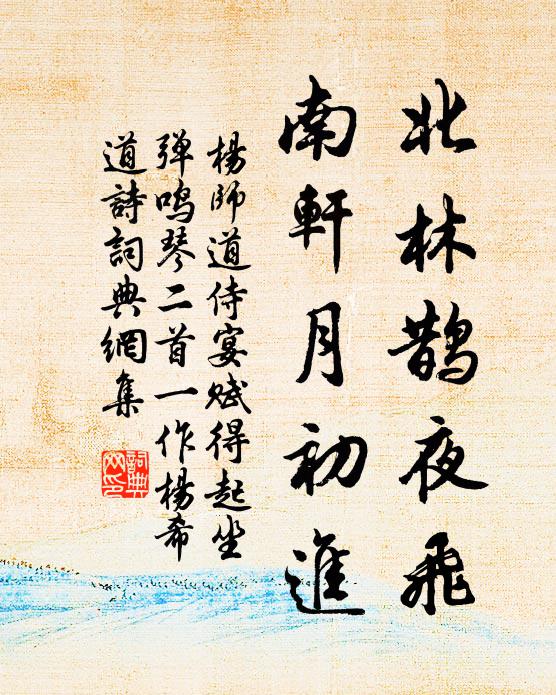 北林鹊夜飛
南軒月初進
楊師道侍宴赋得起坐
弹鸣琴二首一作楊希
道詩詞典網集
詞典
网印